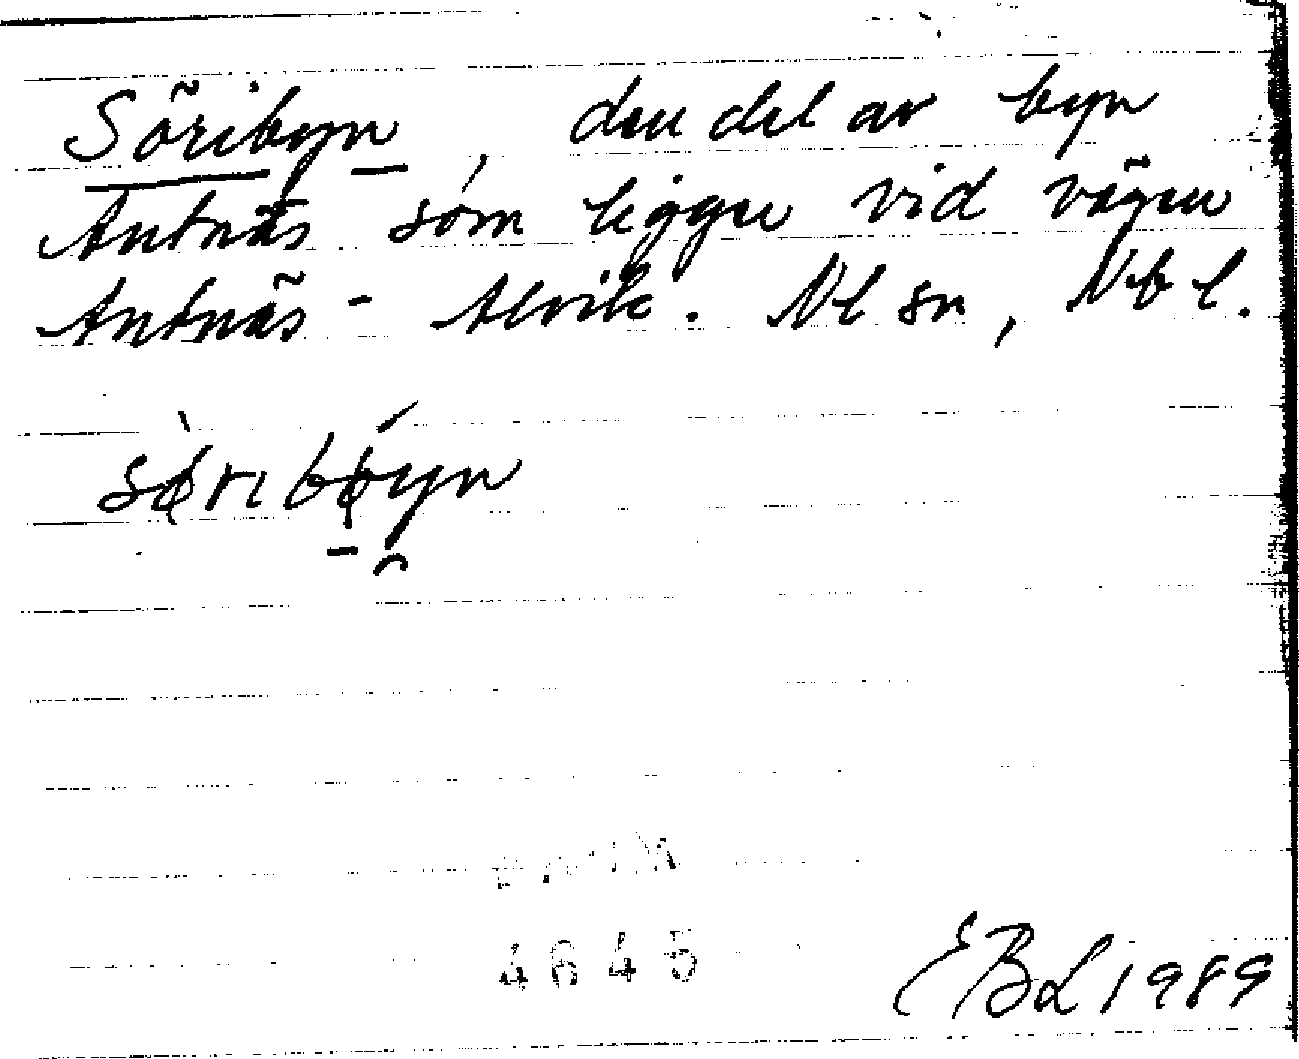 Söribyn, den del av byn
Antnäs som ligger vid vägen
Antnäs - Alvik. Nl sn, Nb l.
4645
EBL 1989